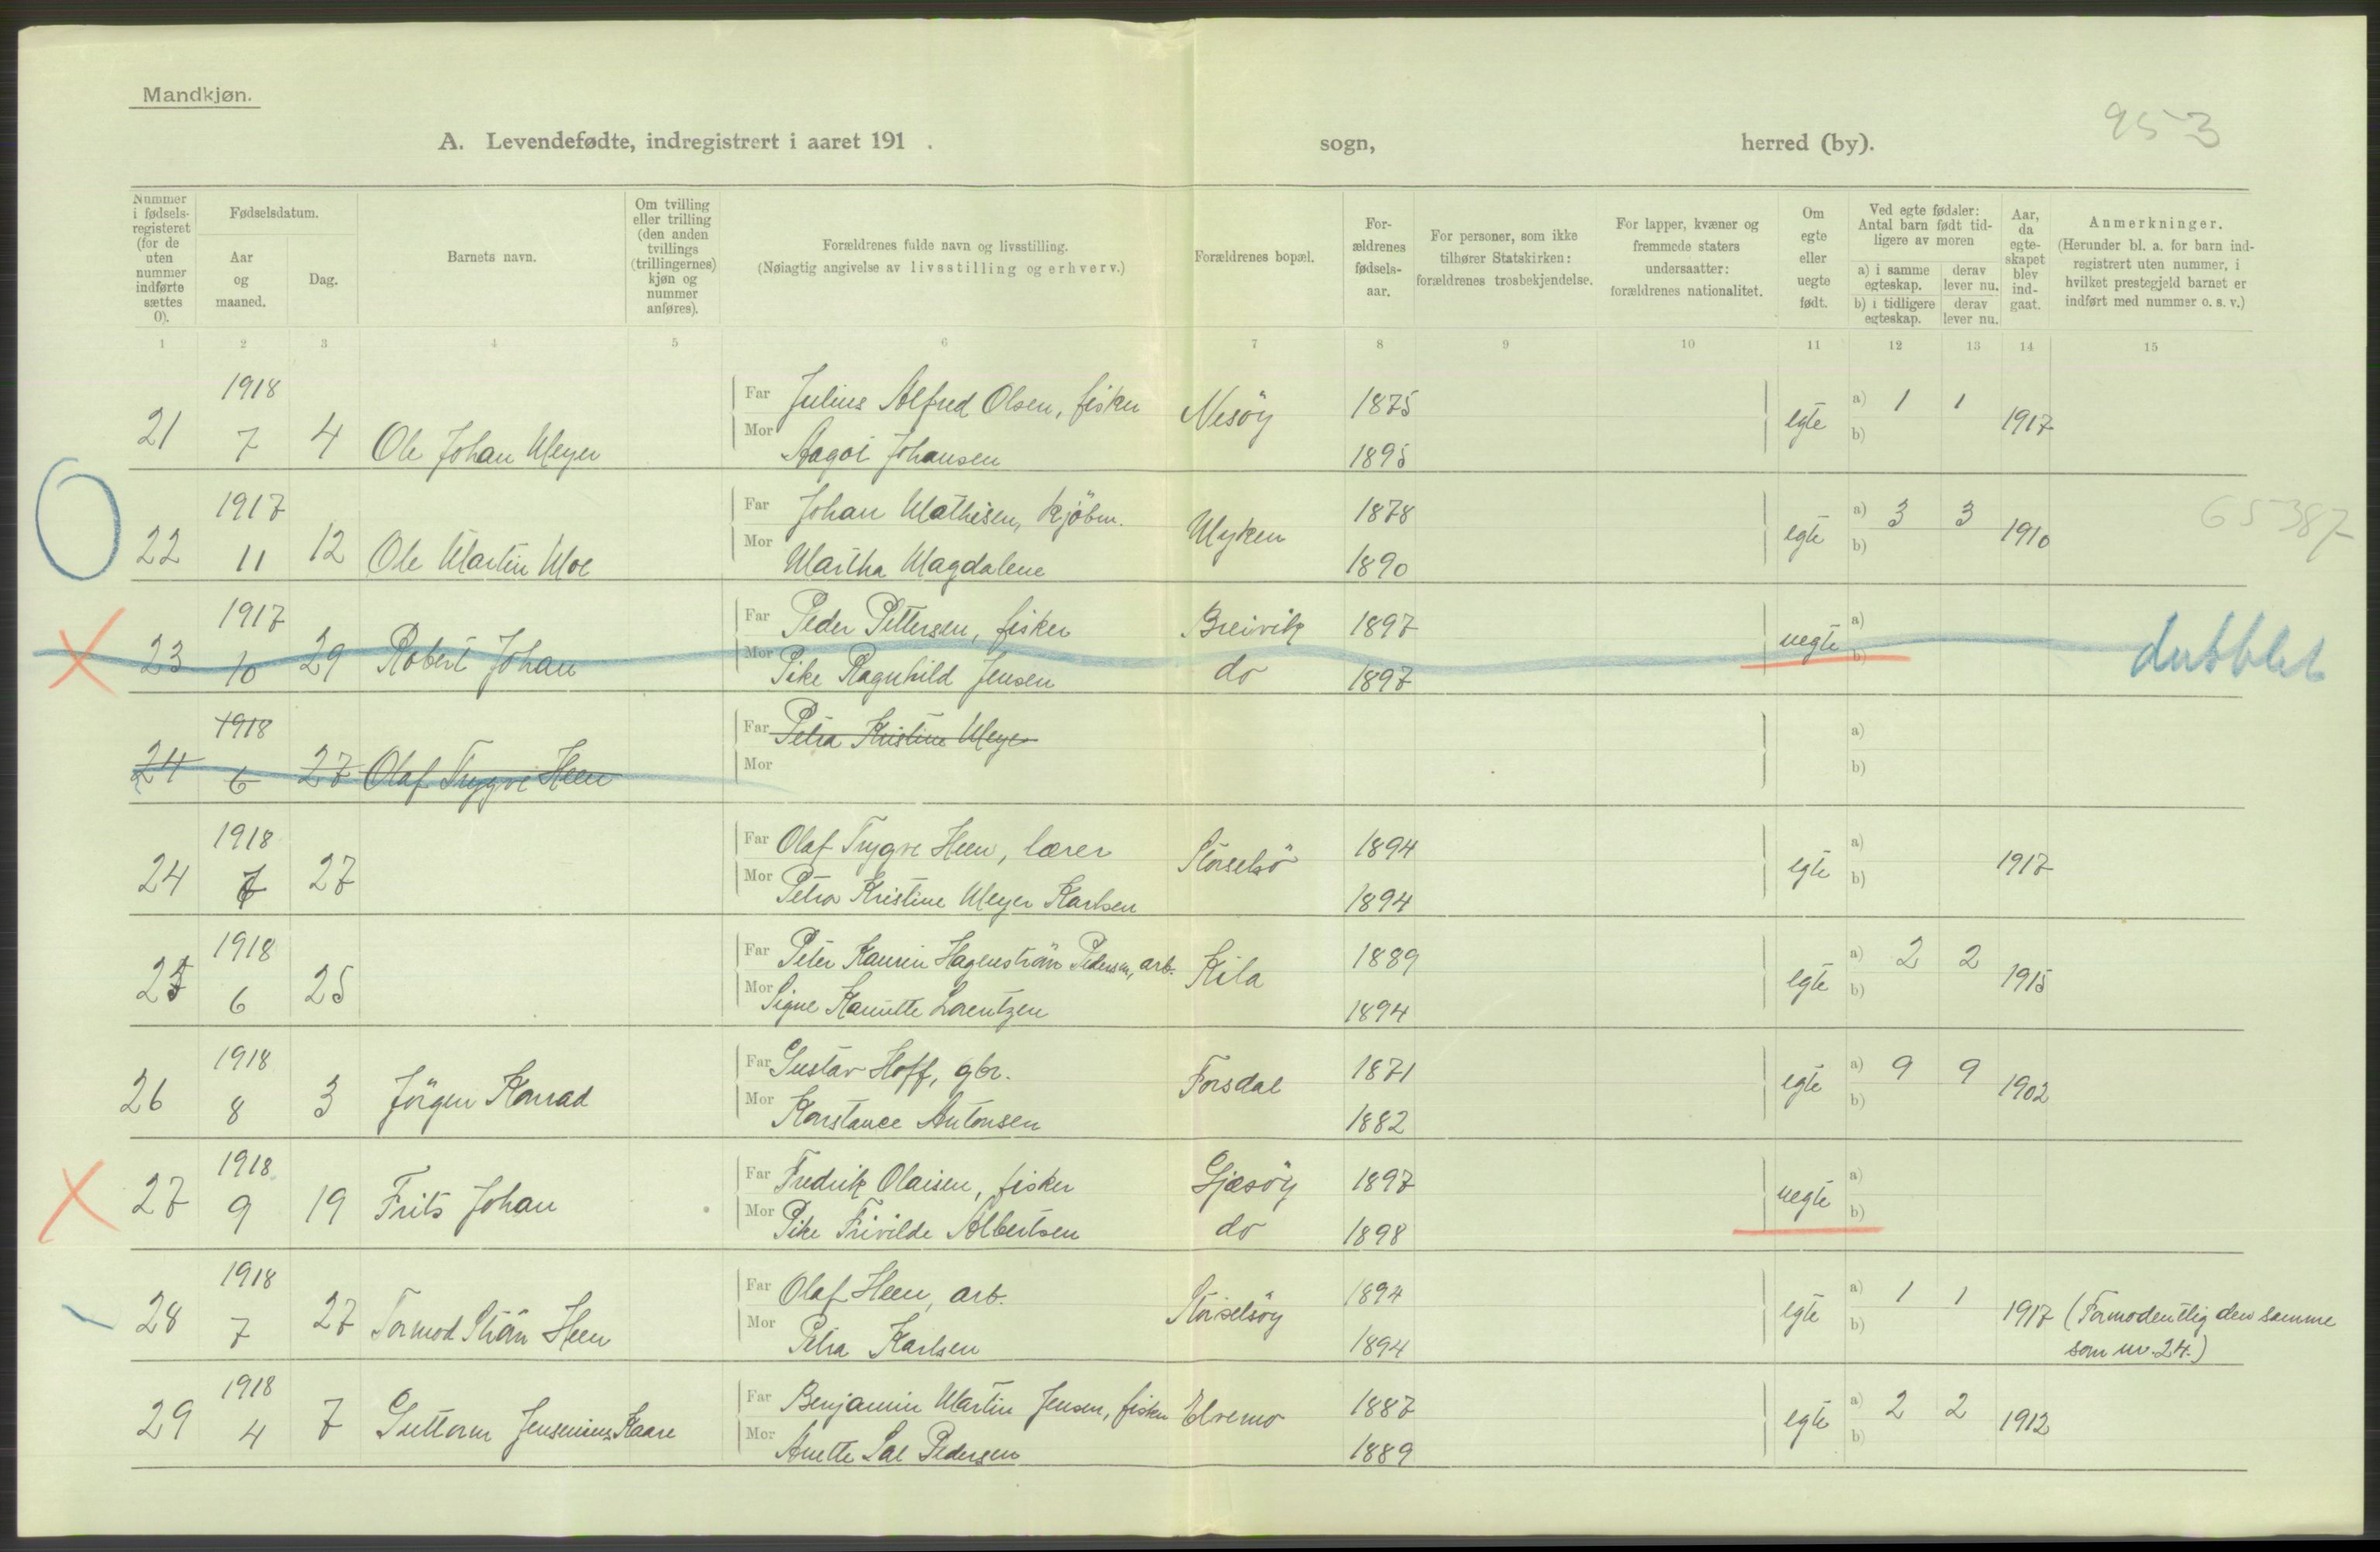 Mandkjøn.
953
A. Levendefødte, indregistrert i aaret 191 . sogn, herred (by).
Nummer i fødsels-registeret (for de uten nummer indførte sættes 0).
Fødselsdatum.
Aar og maaned.
Dag.
Barnets navn.
Om tvilling eller trilling (den anden tvillings (trillingernes) kjøn og nummer anføres).
Forældrenes fulde navn og livsstilling.
(Nøiagtig angivelse av livsstilling og erhverv.)
Forældrenes bopæl.
For-ældrenes fødsels-aar.
For personer, som ikke tilhører Statskirken: forældrenes trosbekjendelse.
For lapper, kvæner og fremmede staters undersaatter: forældrenes nationalitet.
Om egte eller uegte født.
Ved egte fødsler: Antal barn født tid-ligere av moren
a) i samme egteskap.
derav lever nu.
b) i tidligere egteskap.
derav lever nu.
Aar, da egte-skapet blev ind-gaat.
Anmerkninger.
(Herunder bl. a. for barn ind-registrert uten nummer, i hvilket prestegjeld barnet er indført med nummer o. s. v.)
1 2 3 4 5 6 7 8 9 10 11 12 13 14 15
1918 Far Julius Alfred Olsen, fisker Nesöy 1875 a) 1 1
21 7 4 Ole Johan Meyer Mor Aagot Johansen 1895 egte b) 1917
1917 Far Johan Mathisen, kjöbm. Myken 1878 a) 3 3 65387
22 11 12 Ole Martin Moe Mor Martha Magdalene 1890 egte b) 1910
1917 Far Peder Pettersen, fisker Breivik 1897 a)
23 10 29 Robert Johan Mor Pike Ragnhild Jensen do 1897 uegte b) dubblet
1918 Far Petra Kristine Meyer a)
24 6 27 Olaf Trygve Heen Mor b)
1918 Far Olaf Trygve Heen, lærer Storselsö 1894 a)
24 7 27 Mor Petra Kristine Meyer Karlsen 1894 egte b) 1917
1918 Far Peter Kaurin Hagenström Pedersen, arb. Kila 1889 a) 2 2
25 6 25 Mor Signe Lorentzen 1894 egte b) 1915
1918 Far Gustav Hoff, gbr. Forsdal 1871 a) 9 9
26 8 3 Jörgen Konrad Mor Konstance Antonsen 1882 egte b) 1902
1918 Far Fredrik Olaisen, fisker Gjæsöy 1897 a)
27 9 19 Frits Johan Mor Pike Frivilde Albertsen do 1898 uegte b)
1918 Far Olaf Heen, arb. Storselsöy 1894 a) 1 1
28 7 27 Tormod Heen Mor Petra Karlsen 1894 egte b) 1917 (Formodentlig den samme
som nr. 24.)
1918 Far Benjamin Martin Jensen, fisker Elvemo 1887 a) 2 2
29 4 7 Guttorm Jensenius Kaare Mor Anette Pedersen 1889 egte b) 1912